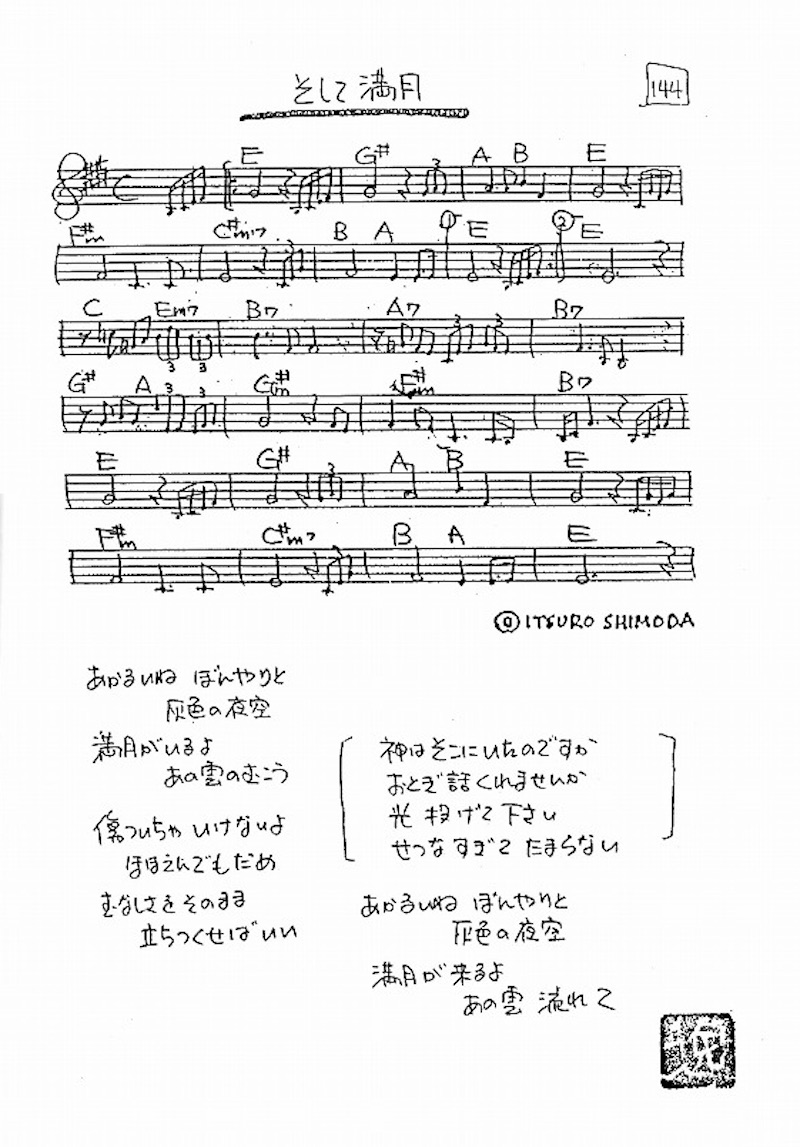 そして満月
144
E G# A B E
F#m C#m7 B A ① E ② E
C Em7 B7 A7 B7
G# A G#m F#m B7
E G# A B E
F#m C#m7 B A E
ITSURO SHIMODA
あかるいね ぼんやりと
灰色の夜空
満月がいるよ
あの雲のむこう
傷ついちゃ いけないよ
ほほえんでもだめ
むなしさをそのまま
立ちつくせばいい
神はそこにいたのですか
おとぎ話くれませんか
光 投げて 下さい
せつなすぎて たまらない
あかるいね ぼんやりと
灰色の夜空
満月が来るよ
あの雲 流れて